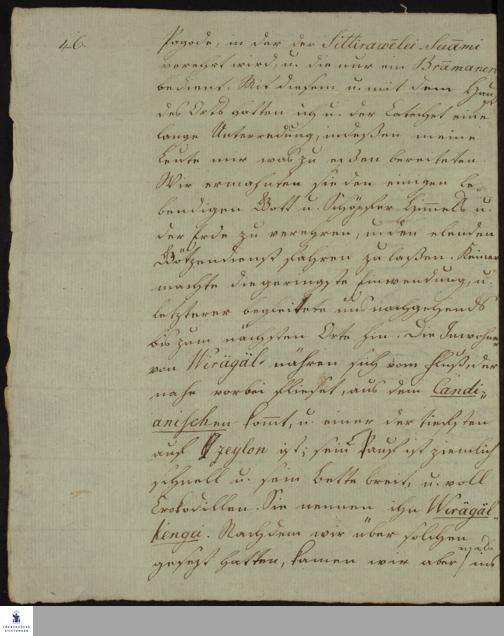 46.
Pagode, in der der Sittirawēlei-Suāmi
verehrt wird, u. die nur ein Brāmaner
bedient. Mit diesem u. mit dem Haupt
des Orts hatten ich u. der Catechet eine
lange Unterredung, indeßen meine
Leute nur was zu eßen bereiteten
Wir ermahnten sie den einigen le-
bendigen Gott u. Schöpfer Himmels u.
der Erde zu verehren, u. den elenden
Götzendienst fahren zu laßen. Keiner
machte die geringste Einwendung, u.
letzterer begleitete uns nachgehends
bis zum nächsten Orte hin. Die Inwohner
von Wirāgāl nähren sich vom Fluß, der
nahe vorbei fließet, aus dem Candi-
anischen kommt, u. einer der tiefsten
auf Zeylon ist; sein Lauf ist ziemlich
schnell u. sein Bette breit, u. voll
Crokodillen. Sie nennen ihn Wirāgāl-
kengei. Nachdem wir über solchen
gesetzt hatten, kamen wir aber
FRANCKESCHE STIFTUNGEN